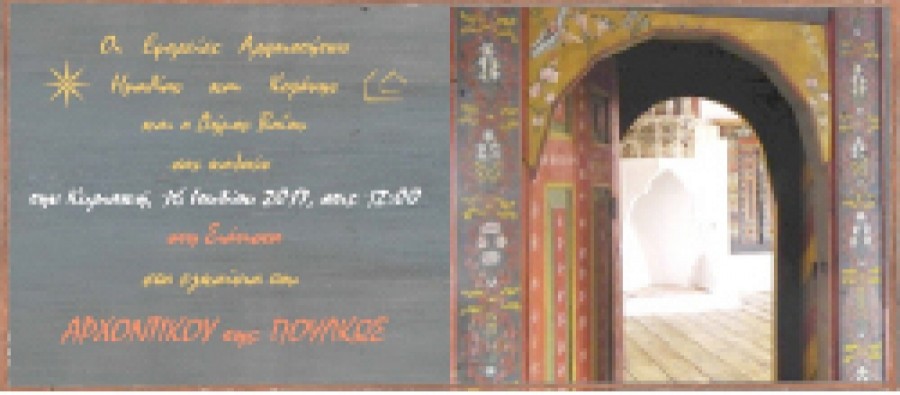 Οι Εφορείες Αρχαιοτήτων
Ημαθίας και Κοζάνης
και ο Δήμος Βοΐου
σας καλούν
την Κυριακή, 16 Ιουλίου 2017, στις 12:00
στη Σιάτιστα
στα εγκαίνια του
ΑΡΧΟΝΤΙΚΟΥ της ΠΟΥΛΚΩΣ